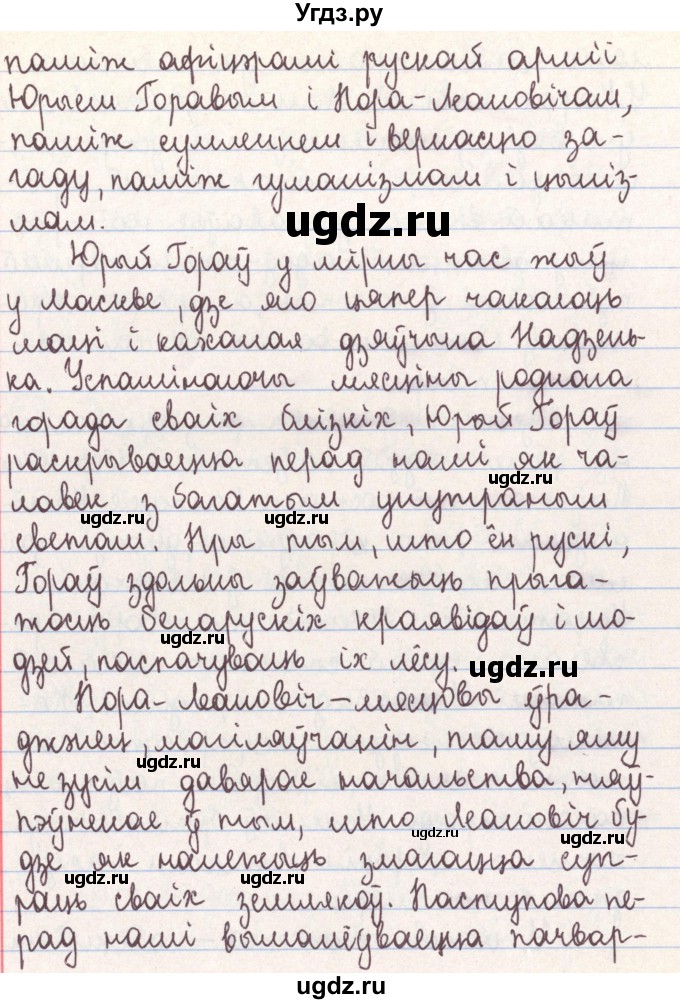 Угдз.ру
паміж афіцэрамі рускай арміі
Юрыем Горавым і Нора-Леановічам,
паміж сумленнем і вернасцю за-
гаду, паміж гуманізмам і цыніз-
мам.
ugdz.ru
Юрый Гораў у мірны час жыў
у Маскве, дзе яго цяпер чакаюць
маці і каханая дзяўчына Надзень-
ка. Успамінаючы мясціны роднага
горада сваіх блізкіх, Юрый Гораў
раскрываецца перад намі як ча-
лавек з багатым унутраным
ugdz.ru ugdz.ru
светам. Пры тым, што ён рускі,
Гораў здольны заўважыць прыга
жосць беларускіх краявідаў і лю-
ugdz.ru
дзей, паспачуваць іх лёсу.
ugdz.ru
Нора-Леановіч – мясцовы ўра-
джэнец, магіляўчанін, таму яму
ugdz.ru
не зусім давярае начальства, няў-
пэўненае ў тым, што Леановіч бу-
ugdz.ru
дзе як належыць змагацца суп-
ugdz.ru ugdz.ru
раць сваіх землякоў. Паступова пе-
рад намі вымалёўваецца пачвар-
ugdz.ru